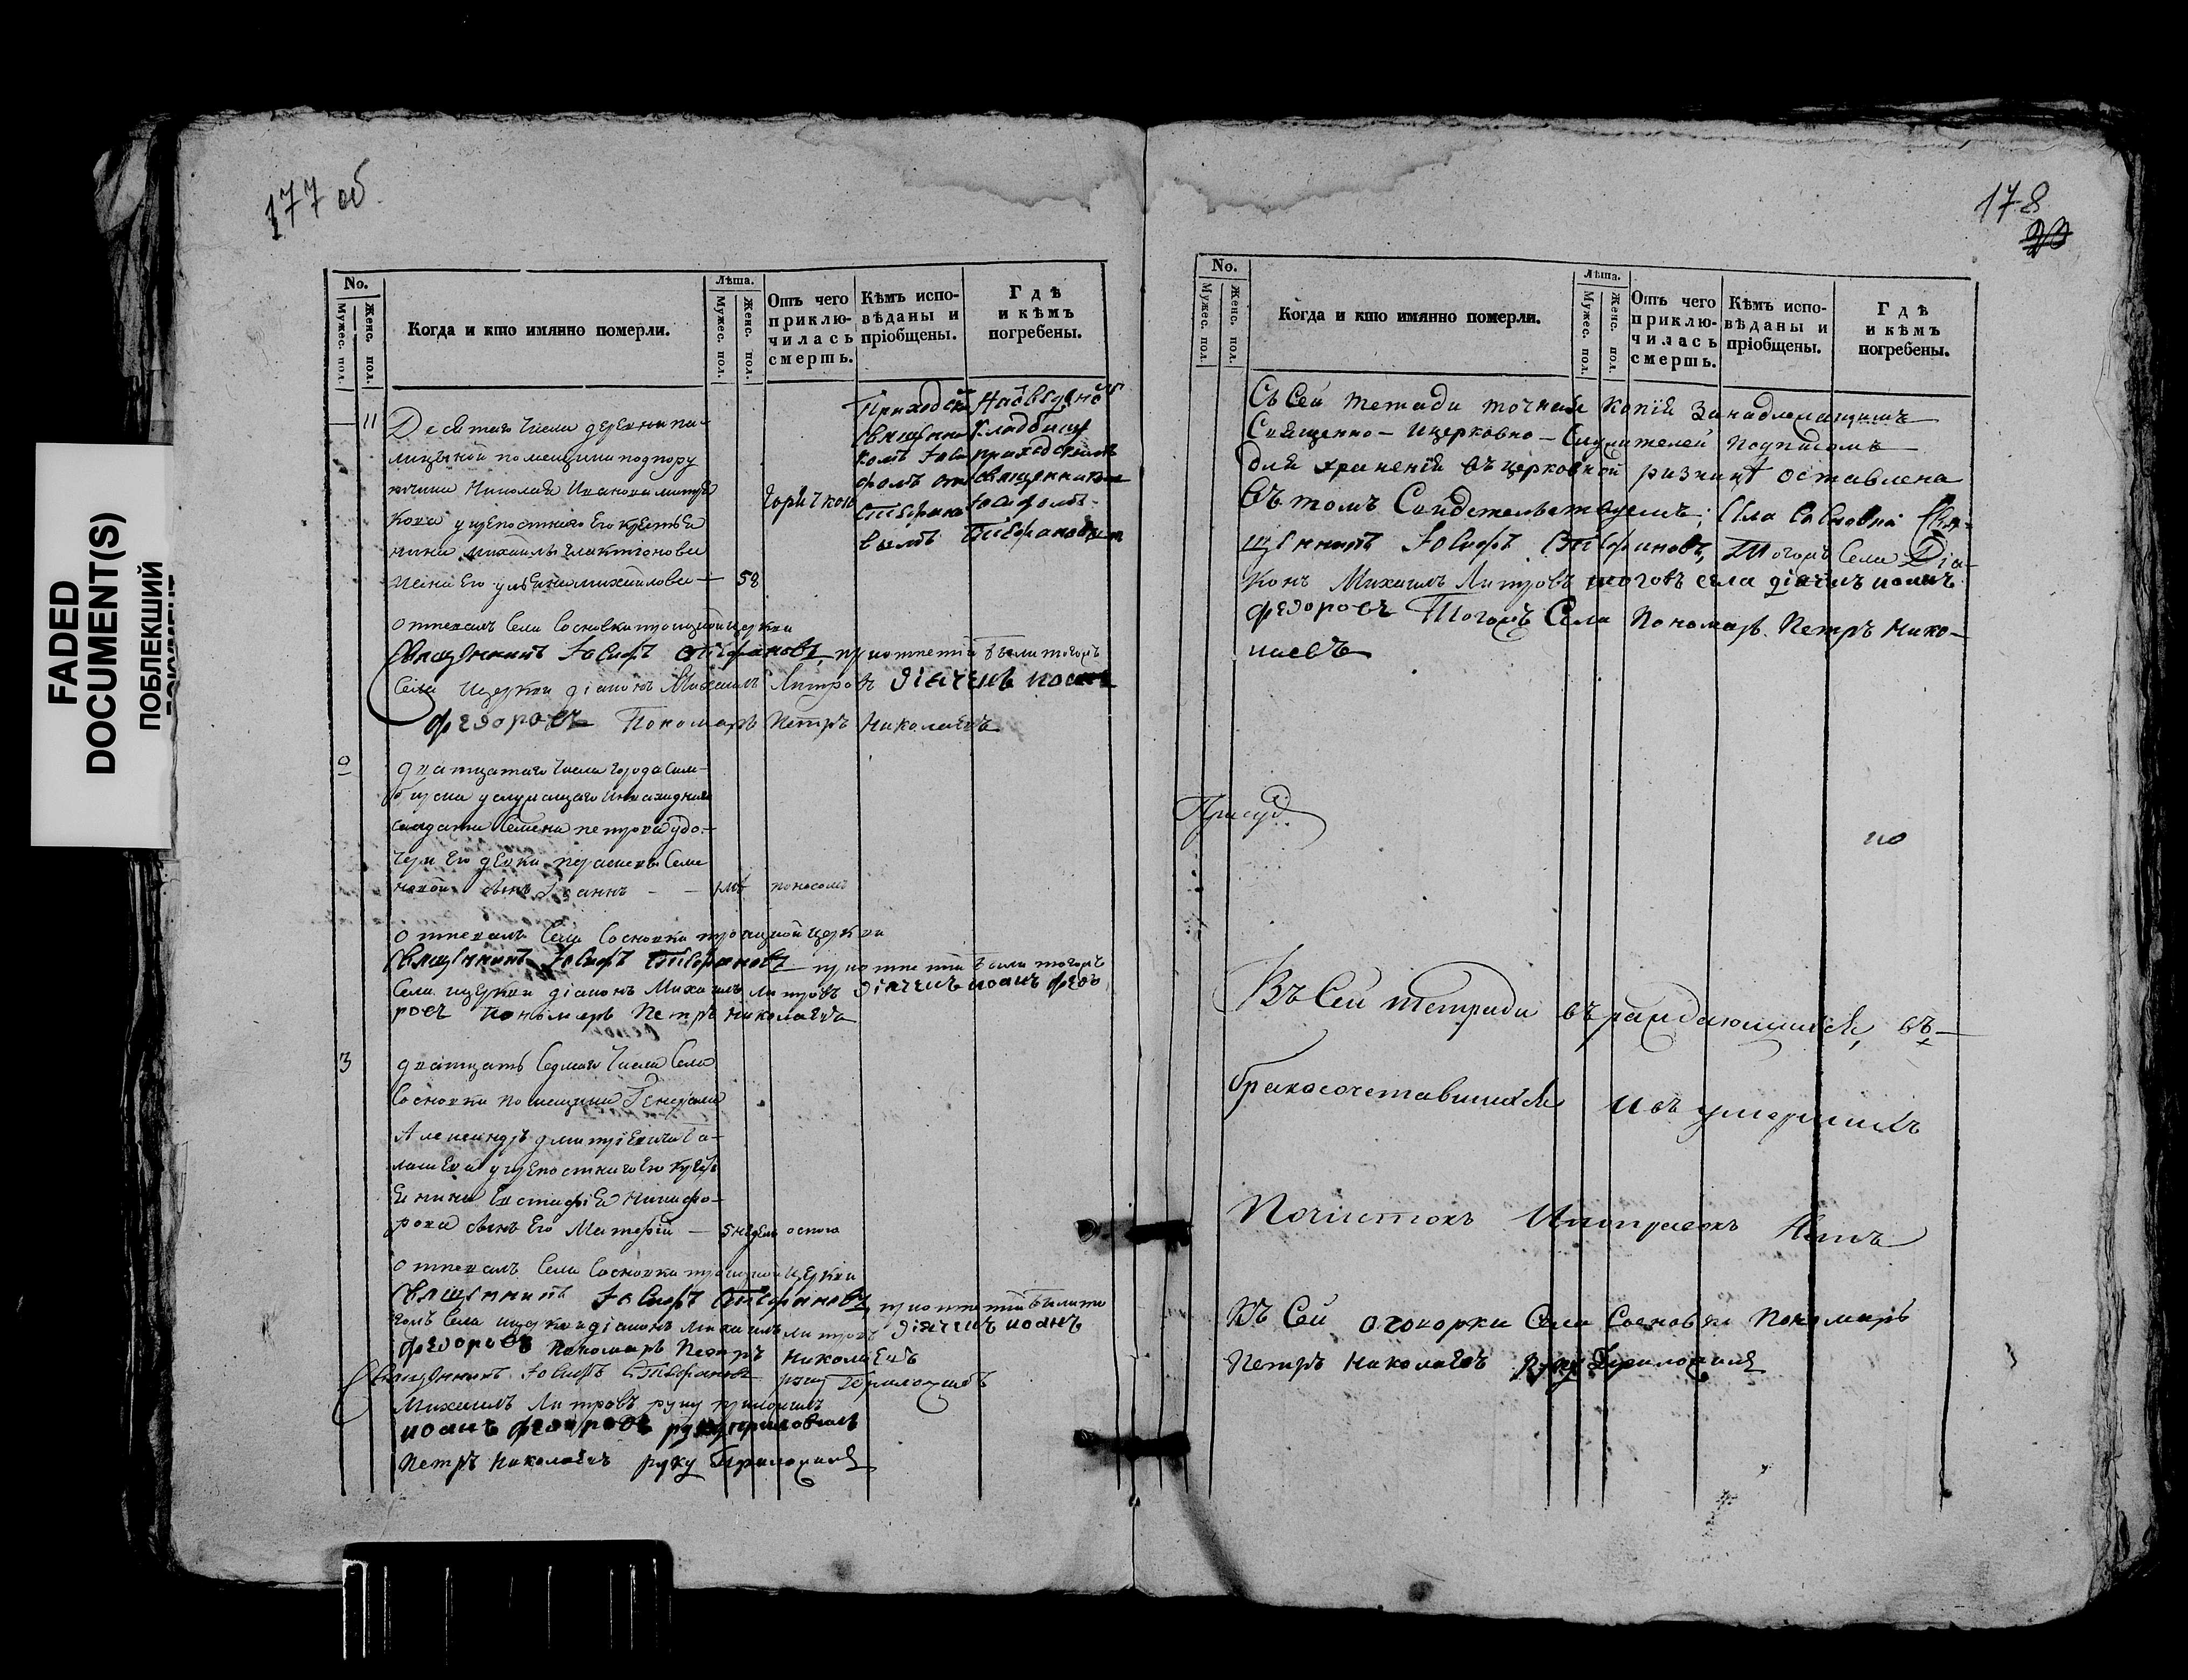 FADED
DOCUMENT(S)
ПОБЛЕКШИЙ
177 об
No.
Мужес. пол.
Женс. пол.
Когда и кто имянно померли.
Лѣта.
Мужес. пол.
Женс. пол.
Отъ чего приклю-чилась смерть.
Кѣмъ испо-вѣданы и пріобщены.
Гдѣ и кѣмъ погребены.
11
Десятаго числа деревни па-
лицыной помещика подпору
чика Николая Иванова
кова у крепостнаго Его крестья
нина Михаилы
жена Его ульяна михайлова — 58
горячкою
Приходск
Священни
комъ Iоси
фомъ
Стефано
вымъ
На
кладбищѣ
приходскимъ
священникомъ
Iосифомъ
Стефановымъ
отпевалъ Села Сосновки троицкой церкви
Священникъ Iосифъ Стефановъ, при отпетіи были тогожъ
Села церкви діаконъ Михаилъ Литровъ діячекъ иоанъ
федоровъ Пономарь Петръ Николаевъ
дватцатаго числа города Сим-
бирска у служащаго инвалиднаго
салдата Семена петрова у до-
чери Его девки Семе
новой сынъ Iоаннъ — поносомъ
отпевалъ Села Сосновки троицкой церкви
Священникъ Iосифъ Стефановъ при отпетіи были тогожъ
Села церкви діаконъ Михаилъ Литровъ діячекъ иоанъ федо
ровъ Пономарь Петръ Николаевъ
3
дватцать Седмаго числа Села
Сосновки помещика Генерала
Александръ дмитріевича Ба-
лашева у крепостнаго Его крест
Евстафіея Никифо-
рова сынъ Его — 5 недель оспою
отпевалъ Села Сосновки троицкой церкви
Священникъ Iосифъ Стефановъ при отпетіи были то
гожъ Села церкви діаконъ Михаилъ Литровъ діячекъ иоанъ
федоровъ Пономарь Петръ Николаевъ
Священникъ Iосифъ Стефановъ руку Приложилъ
Михаилъ Литровъ руку приложилъ
иоанъ федоровъ руку приложилъ
Петръ Николаевъ руку Приложилъ
178
No.
Мужес. пол.
Женс. пол.
Когда и кто имянно померли.
Лѣта.
Мужес. пол.
Женс. пол.
Отъ чего приклю-чилась смерть.
Кѣмъ испо-вѣданы и пріобщены.
Гдѣ и кѣмъ погребены.
Съ Сей тетради точная копія за надлежащимъ
Священно-и церковно-Служителей подписомъ
для храненія въ церковной ризницѣ оставлена
въ томъ Свидетельствуемъ; Села Сосновки Свя-
щенникъ Iосифъ Стефановъ, Тогожъ Села Діа-
конъ Михаилъ Литровъ тогожъ села діячекъ иоанъ
федоровъ Тогожъ Села Пономарь Петръ Нико-
лаевъ
Въ Сей тетради въ раждающихся, въ
бракосочетавшихся и въ умершихъ
Почистокъ Ипоправокъ Нетъ
Къ Сей оговорки Села Сосновки Пономарь
Петръ Николаевъ Руку Приложилъ